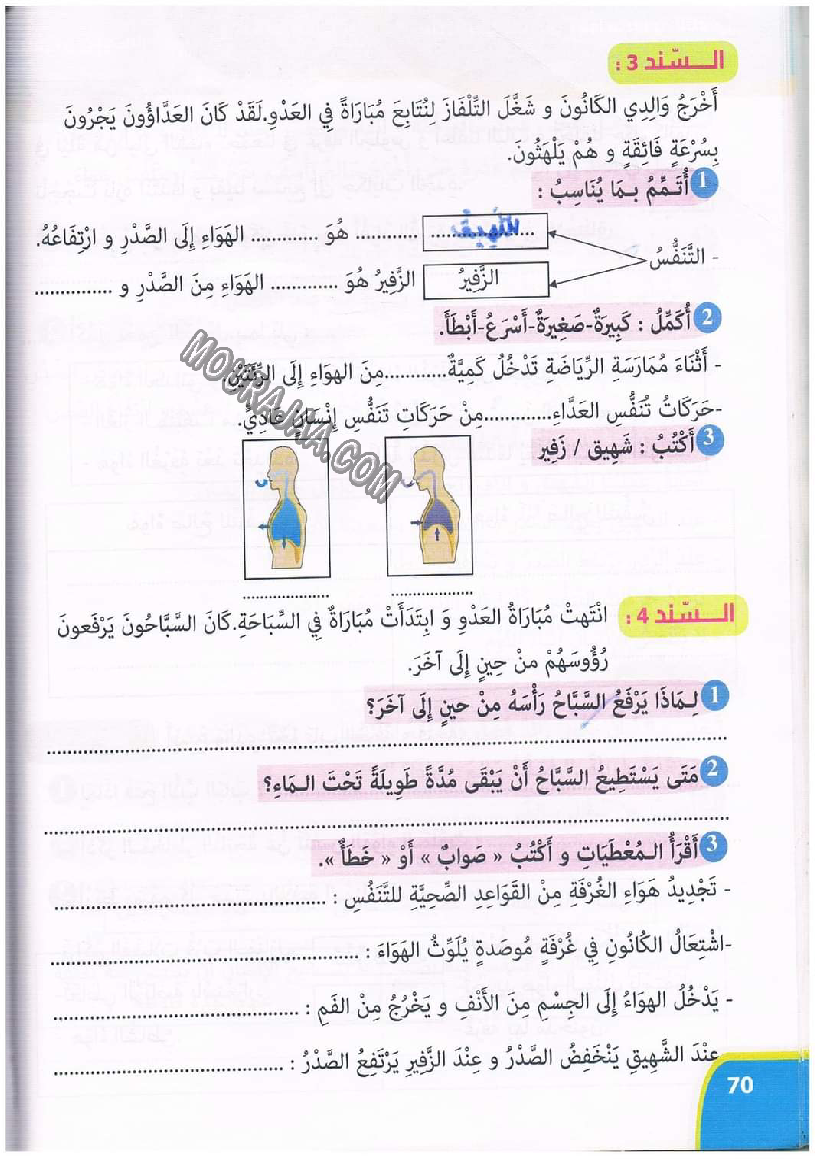 السّند 3 :
أَخْرَجَ وَالِدِي الكَانُونَ و شَغَّلَ التِّلْفَازَ لِنُتَابِعَ مُبَارَاةً فِي العَدْوِ.لَقَدْ كَانَ العَدَّاؤُونَ يَجْرُونَ
بِسُرْعَةٍ فَائِقَةٍ و هُمْ يَلْهَثُونَ.
1 أُتَمِّمُ بِمَا يُنَاسِبُ :
- التَّنَفُّسُ
الشّهيق ............... هُوَ ............ الهَوَاءِ إِلَى الصَّدْرِ و ارْتِفَاعُهُ.
الزَّفِيرُ الزَّفِيرُ هُوَ ............ الهَوَاءِ مِنَ الصَّدْرِ و ..............
2 أُكَمِّلُ : كَبِيرَةٌ-صَغِيرَةٌ-أَسْرَعُ-أَبْطَأَ.
- أَثْنَاءَ مُمَارَسَةِ الرِّيَاضَةِ تَدْخُلُ كَمِيَّةٌ............مِنَ الهوَاءِ إِلَى الرِّئَتَيْنِ.
-حَرَكَاتُ تُنَفُّسِ العَدَّاءِ............مِنْ حَرَكَاتِ تَنَفُّسِ إِنْسَانٍ عَادِيٍّ.
3 أَكْتُبُ : شَهِيق / زَفِير
MOURAJAA.COM
..................... .....................
السّند 4 : انْتَهتْ مُبَارَاةُ العَدْوِ وَ ابِتَدَأَتْ مُبَارَاةٌ فِي السِّبَاحَةِ.كَانَ السَّبَّاحُونَ يَرْفَعونَ
رُؤُوسَهُمْ منْ حِينٍ إِلَى آخَرَ.
1 لِمَاذَا يَرْفَعُ السَّبَّاحُ رَأْسَهُ مِنْ حَينٍ إِلَى آخَرَ؟
2 مَتَى يَسْتَطِيعُ السَّبَّاحُ أَنْ يَبْقَى مُدَّةً طَوِيلَةً تَحْتَ المَاءِ؟
3 أَقْرَأُ المُعْطَيَاتِ و أَكْتُبُ « صَوابٌ » أَوْ « خَطَأٌ ».
- تَجْدِيدُ هَوَاءِ الغُرْفَةِ مِنْ القَوَاعِدِ الصِّحِيَّةِ للتَّنَفُسِ : ............................
-اشْتِعَالُ الكُانُونِ فِي غُرْفَةٍ مُوصَدةٍ يُلَوِّثُ الهَوَاءَ : ............................
- يَدْخُلُ الهوَاءُ إِلَى الجِسْمِ مِنَ الأَنْفِ و يَخْرُجُ مِنْ الفَمِ : ............................
عِنْدَ الشَّهِيقِ يَنْخَفِضُ الصَّدْرُ و عِنْدَ الزَّفِيرِ يَرْتَفِعُ الصَّدْرُ : ............................
70